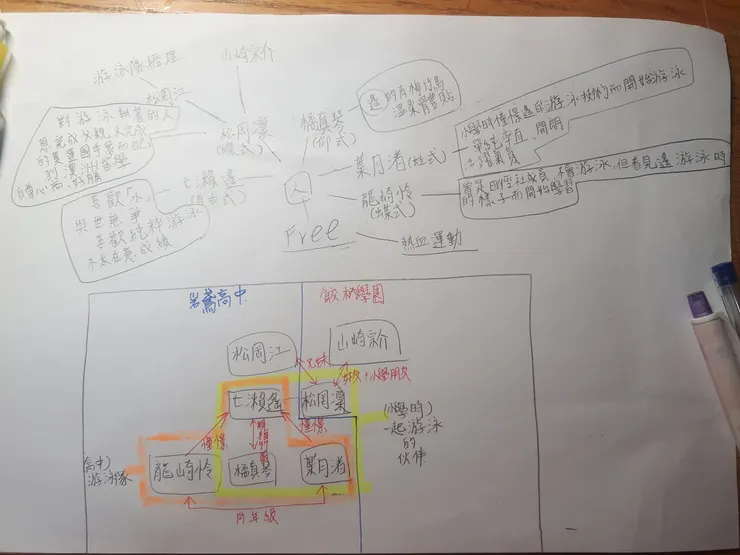 游泳隊經理
山崎宗介
松岡江
對游泳執著的人
想完成父親未完成
的
到澳洲留學
自尊心高、好勝
松岡凜
(蝶式)
橘真琴
(仰式)
遙的青梅竹馬
溫柔體貼
葉月渚(蛙式)
小學時憧憬遙的游泳技術而開始游泳
單純率直 開朗
七瀨遙
(自由式)
喜歡「水」
與世無爭
喜歡純粹游泳
不太在意成績
人
龍崎怜
(蝶式)
曾是田徑社成員,不會游泳,但看見遙游泳時
的樣子而開始學習
Free
熱血運動
岩鳶高中
鮫柄學園
松岡江
山崎宗介
兄妹
好友+小學朋友
七瀨遙
松岡凜
(小學時)
一起游泳
的
伙伴
憧憬
憧憬
(高中)
游泳隊
龍崎怜
橘真琴
葉月渚
同年級